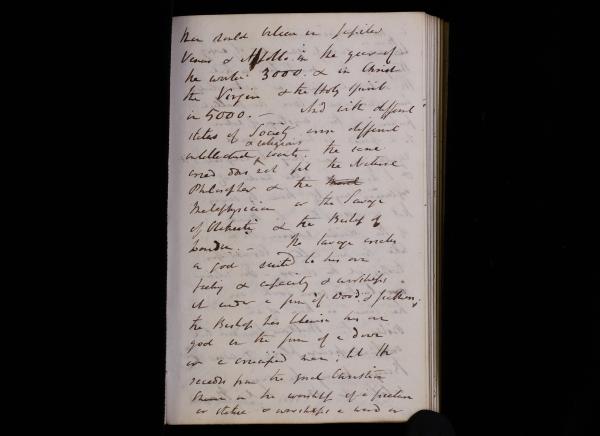 Men should believe in Jupiter
Venus & Apollo in the year of
the world 3000. & in Christ
the Virgin & the Holy Spirit
in 5000. — And with different
states of Society come different
& religious
intellectual wants. the same
creed does not fit the Natural
Philosopher & the
Metaphysician or the Savage
of Otaheite & the Bishop of
London. — The Savage creates
a god suited to his own
feeling & capacity & worships
it under a form of wood & feathers,
the Bishop has likewise his own
god in the form of a dove
or a crucified man; let the
from the great Christian
in the worship of a picture
or statue & worships a word or